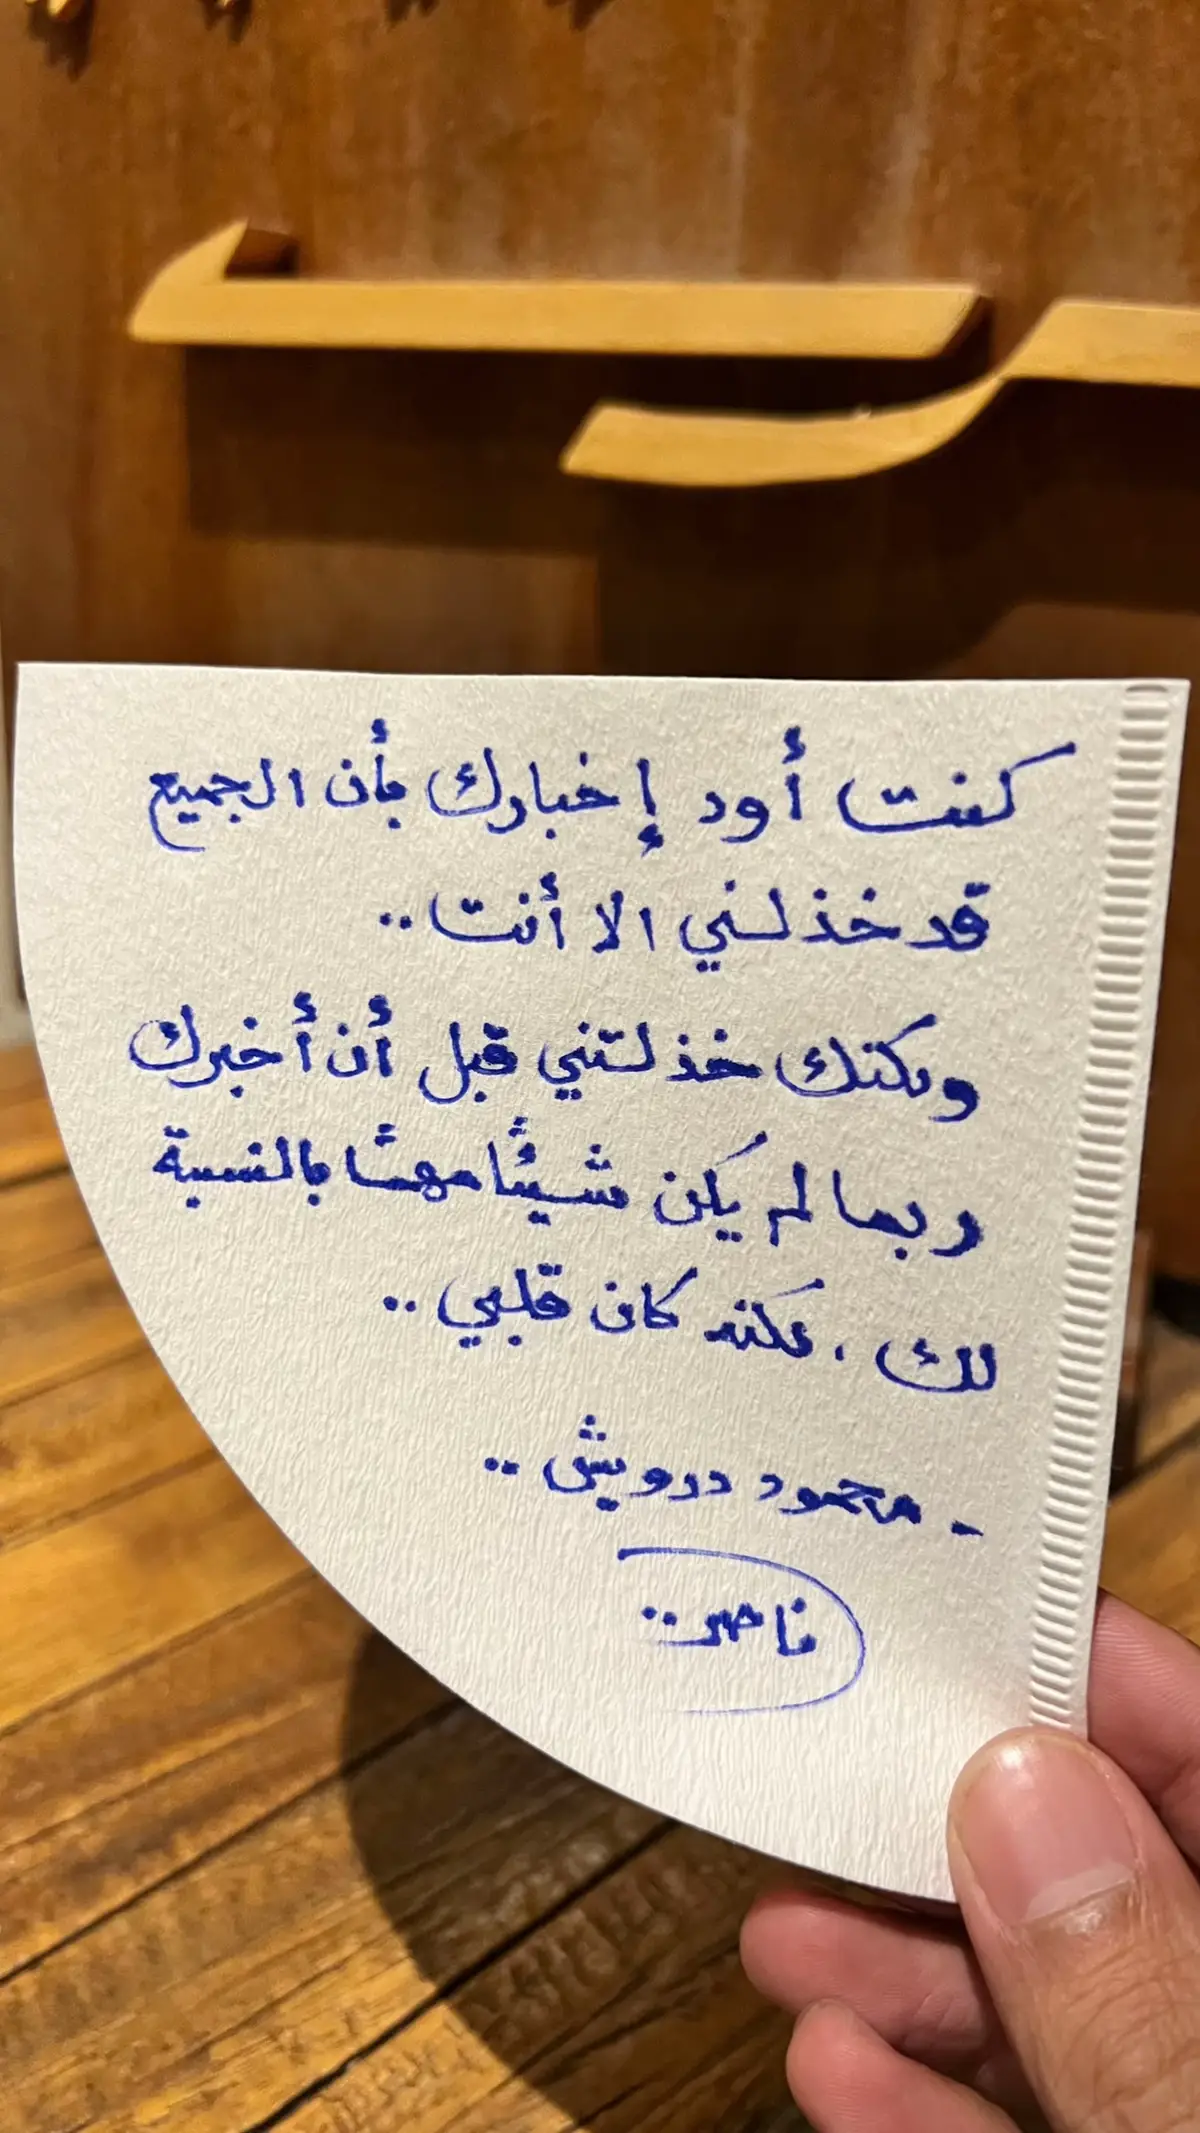 كنت أود إخبارك بأن الجميع
قد خذلني الا أنت..
ولكنك خذلتني قبل أن أخبرك
ربما لم يكن شيئًا مهمًا بالنسبة
لك ، لكنه كان قلبي ..
- محمود درويش ..
ناصر..